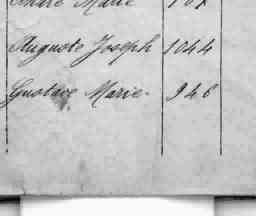 Marie
Auguste Joseph 1044
Gustave Marie. 946